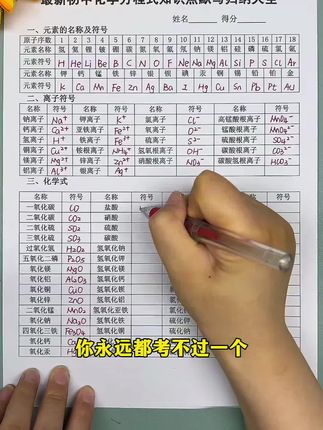 最新初中化学方程式知识点默写归纳大全
姓名 得分
一、元素的名称及符号
原子序数 1 2 3 4 5 6 7 8 9 10 11 12 13 14 15 16 17 18
元素名称 氢 氦 锂 铍 硼 碳 氮 氧 氟 氖 钠 镁 铝 硅 磷 硫 氯 氩
元素符号 H He Li Be B C N O F Ne Na Mg Al Si P S Cl Ar
元素名称 钾 钙 锰 铁 锌 银 钡 碘 汞 铜 锡 铅 铂 金
元素符号 K Ca Mn Fe Zn Ag Ba I Hg Cu Sn Pb Pt Au
二、离子符号
元素名称 符号 元素名称 符号 元素名称 符号 元素名称 符号
钠离子 Na⁺ 钾离子 K⁺ 氯离子 Cl⁻ 高锰酸根离子 MnO₄⁻
钙离子 Ca²⁺ 亚铁离子 Fe²⁺ 氧离子 O²⁻ 锰酸根离子 MnO₄²⁻
氢离子 H⁺ 铁离子 Fe³⁺ 硫离子 S²⁻ 硫酸根离子 SO₄²⁻
铜离子 Cu²⁺ 铵根离子 NH₄⁺ 氢氧根离子 OH⁻ 碳酸根离子 CO₃²⁻
镁离子 Mg²⁺ 锌离子 Zn²⁺ 硝酸根离子 NO₃⁻ 碳酸氢根离子 HCO₃⁻
铝离子 Al³⁺ 银离子 Ag⁺
三、化学式
元素名称 符号 元素名称 符号
一氧化碳 CO 盐酸
二氧化碳 CO₂ 硝酸
二氧化硫 SO₂ 硫酸
三氧化硫 SO₃ 碳酸
过氧化氢 H₂O₂ 氢氧化钠
五氧化二磷 P₂O₅ 氢氧化钙
氧化镁 MgO 氢氧化钾
氧化铝 Al₂O₃ 氢氧化镁
氧化铜 CuO 氢氧化钡
氧化锌 ZnO 氢氧化铝
二氧化锰 MnO₂ 氢氧化亚铁
氧化钠 Na₂O 氢氧化铁 硫化钾
四氧化三铁 Fe₃O₄ 氢氧化铜 硫化钠
氧化钙
氧化汞
你永远都考不过一个